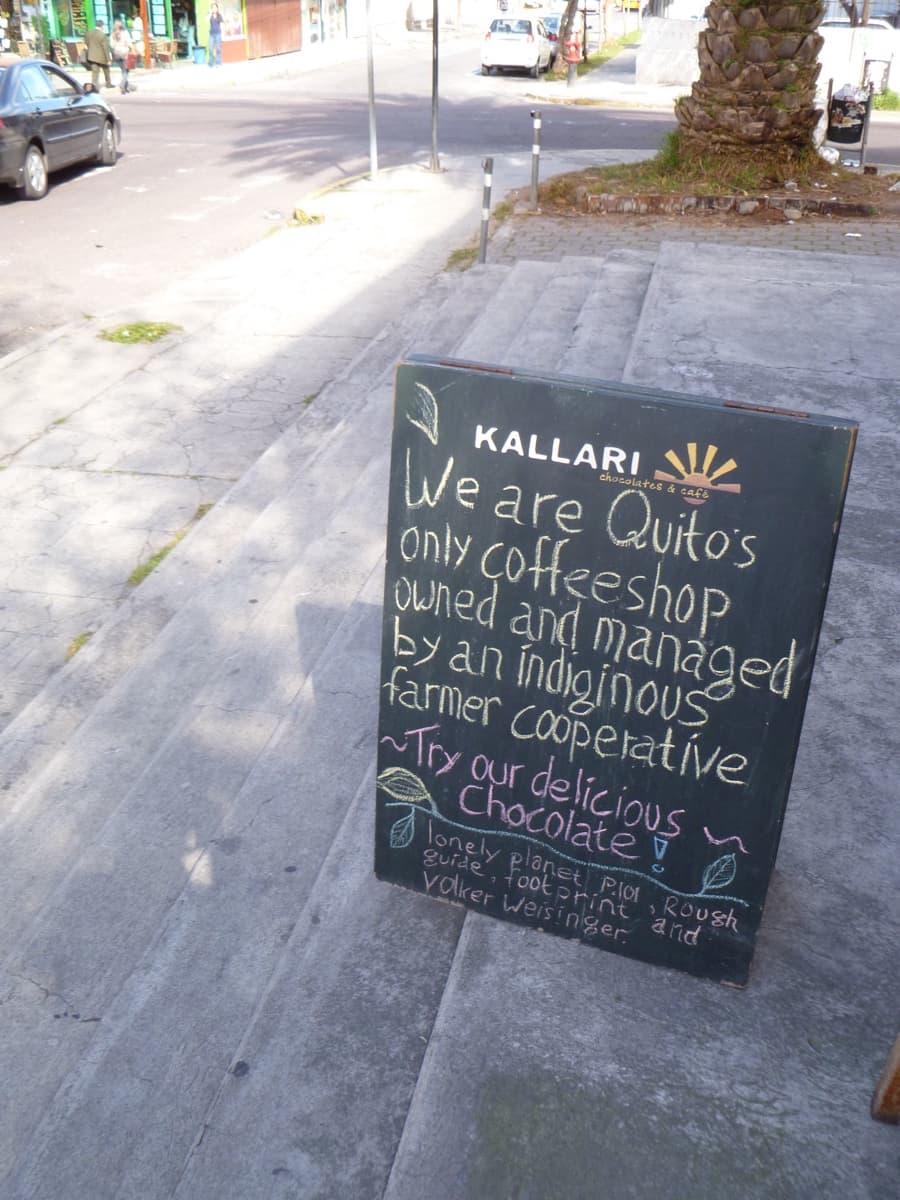 KALLARI
chocolates & café
We are Quito's
only coffeeshop
owned and managed
by an indiginous
farmer cooperative
~Try our delicious
Chocolate! ~
lonely planet P.101, Rough
guide, footprint and
Volker Weisinger.